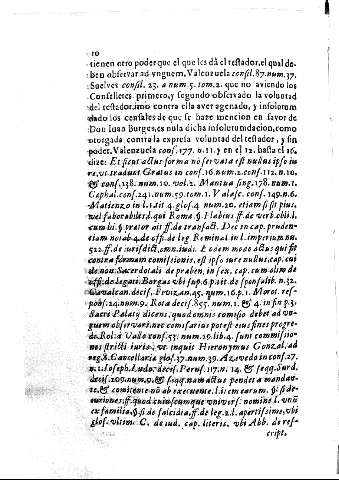 10
tienen otro poder que el que les dà el testador, el qual de-
ben observar ad vnguem, Valenzuela consil. 87. num. 37.
Suelves consil. 23. a num. 5. tom. 2. que no aviendo los
Conselleres primero, y segundo observado la voluntad
del testador, imo contra ella aver agenado, y insolutum
dado los censales de que se haze mencion en favor de
Don Iuan Burges, es nula dicha insolutumdacion, como
otorgada contra la expressa voluntad del testador, y sin
poder. Valenzuela consf. 177. n. 11. y en el 12. hasta el 16.
dize: Et sicut actus forma non servata est nullus ipso iu-
re, vt tradunt Gratus in conf. 16. num. 2. conf. 112. n. 10.
& conf. 138. num. 10. vol. 2. Mantua sing. 178. num. 1.
Cephal. conf. 241. num. 59. tom. 2. Valasc. conf. 149. n. 6.
Matienzo in l. 1. tit. 4. glos. 4. num. 20. etiam si sit pius,
vel favorabilis l. qui Roma §. Flabius ff. de verb. obli. l.
cum hi §. prætor ait ff. de transact. Dec in cap. pruden-
tiam notab. 4. de offi. de leg. Reminal in l. imperium nu.
522. ff. de iurisdict. omn. iud. Eodem modo actus qui fit
contra formam comissionis, est ipso iure nullus, cap. cui
de non Sacerdotali de præben, in sex. cap. cum olim de
offi. de legati Borgas vbi sup. 6. p. tit. de sponsalib. n. 32.
Cavalcan. decis. 45. num. 16. p. 1. Morot. res-
pons. 24. num. 9. Rota decis. 855. num. 1. & 4. in fin p. 3.
Sacri Palaty dicens, quod omnis comisso debet ad vn-
guem observari, nec comisarius potest eius fines progre-
di Rol. a Valle cons. 53. num. 19. lib. 4. sunt commissio-
nes stricti iuris, vt inquit Hieronymus Gonzal, ad
reg. 8. Cancellaria glos. 37. num. 39. Azevedo in conf. 27.
n. 12. Ioseph. Ludo. decis. Perus. 117. n. 14. & seqq. Surd.
decis. 209. num. 9. & seqq. nam actus pendet a mandan-
te, & comitente nō ab exequente l. item eorum §. si de-
curiones ff. quod cuiuscumque univers. nomine l. vnū
ex familia, §. si de falcidia, ff. de leg. 2. l. apertissime, vbi
glos. vltim. C. de iud. cap. literis. vbi Abb. de res-
cript.